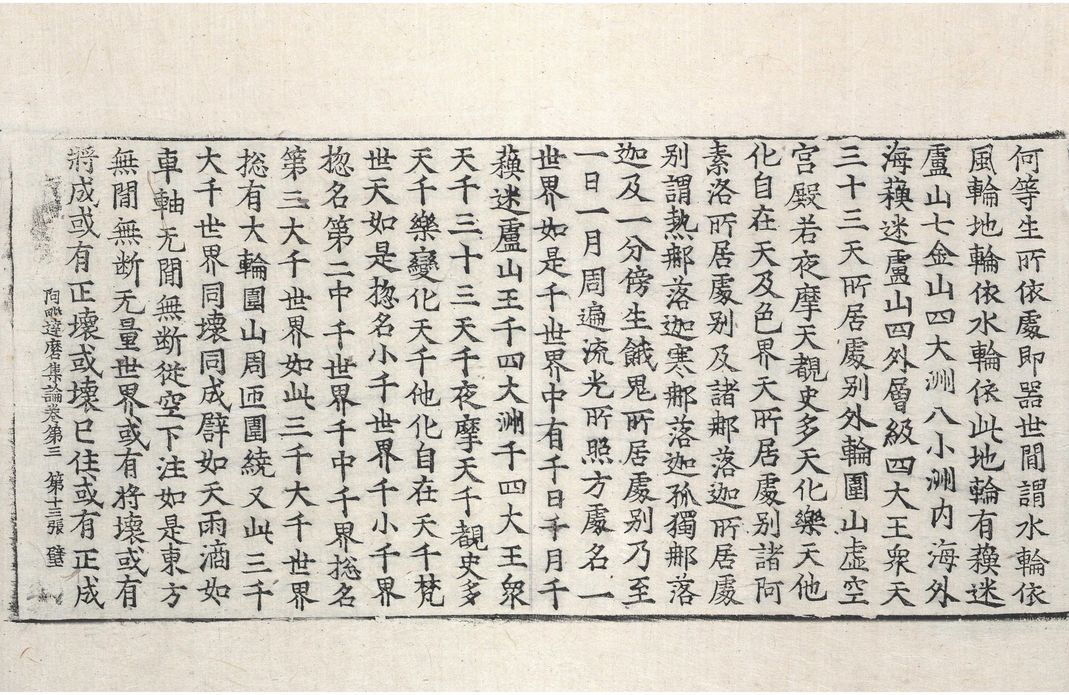 何等生所依處即器世間謂水輪依
風輪地輪依水輪依此地輪有蘓迷
盧山七金山四大洲八小洲内海外
海蘓迷盧山四外層級四大王衆天
三十三天所居處別外輪圍山虚空
宮殿若夜摩天覩史多天化樂天他
化自在天及色界天所居處別諸阿
素洛所居處別及諸那落迦所居處
別謂熱那落迦寒那落迦孤獨那落
迦及一分傍生餓鬼所居處別乃至
一日一月周遍流光所照方處名一
世界如是千世界中有千日千月千
蘓迷盧山王千四大洲千四大王衆
天千三十三天千夜摩天千覩史多
天千樂變化天千他化自在天千梵
世天如是惣名小千世界千小千界
惣名第二中千世界千中千界惣名
第三大千世界如此三千大千世界
惣有大輪圍山周匝圍繞又此三千
大千世界同壞同成譬如天雨滴如
車軸无間無断從空下注如是東方
無間無断无量世界或有将壞或有
將成或有正壞或壞已住或有正成
阿毗達磨集論卷第三 第十三張 璧